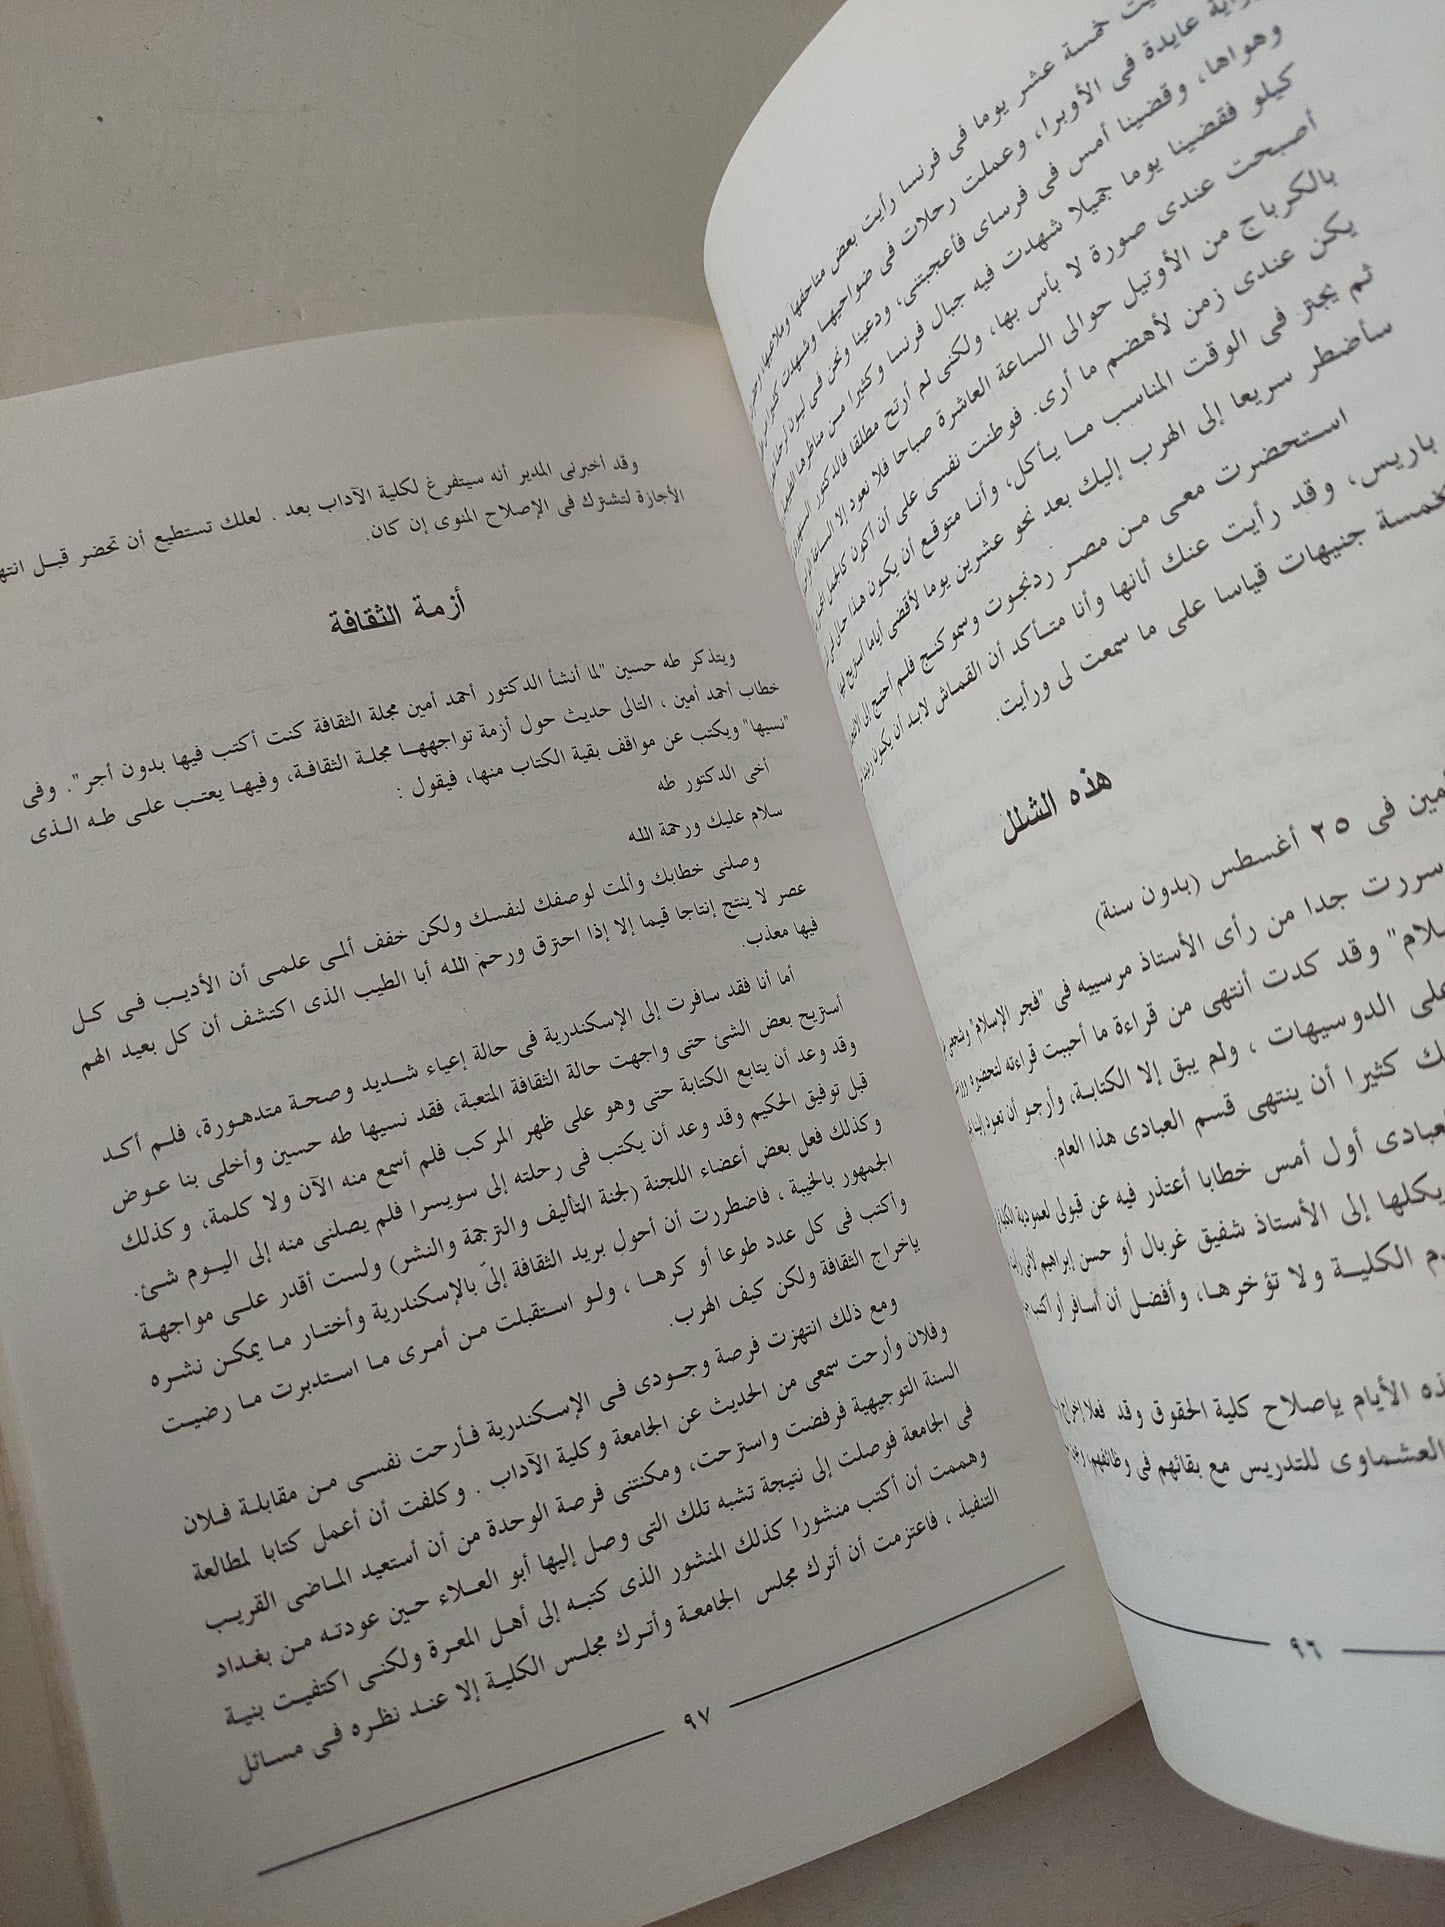 خمسة عشر يوما فى فرنسا رأيت بعض متاحفها وملاعبها،
عايدة فى الأوبرا، وعملت رحلات فى ضواحيها وشهدت
وهواها، وقضينا أمس فى فرساى فأعجبتنى، ودعينا ونحن فى ليون لرحلة
كيلو فقضينا يوما جميلا شهدت فيه جبال فرنسا وكثيرا من مناظرها
أصبحت عندى صورة لا بأس بها، ولكنى لم أرتح مطلقا فالدكتور السنهورى
بالكرباج من الأوتيل حوالى الساعة العاشرة صباحا فلا نعود إلا الساعة
يكن عندى زمن لأهضم ما أرى. فوطنت نفسى على أن أكون كالجمل
ثم يجتر فى الوقت المناسب ما يأكل، وأنا متوقع أن يكون هذا حال
سأضطر سريعا إلى الهرب إليك بعد نحو عشرين يوما لأقضى أياما أستريح
استحضرت معى من مصر ردنجوت وسموكنج فلم أحتج إلى
باريس، وقد رأيت عنك أثمانها وأنا متأكد أن القماش لابد أن يكون
خمسة جنيهات قياسا على ما سمعت لى ورأيت.
هذه الشلل
فى ٢٥ أغسطس (بدون سنة)
سررت جدا من رأى الأستاذ مرسييه فى "فجر الإسلام"
وقد كدت أنتهى من قراءة ما أحببت قراءته لتحضيره
على الدوسيهات ، ولم يبق إلا الكتابة، وأرجو أن تعود
كثيرا أن ينتهى قسم العبادى هذا العام.
أول أمس خطابا أعتذر فيه عن قبولى لعمودية
يكلها إلى الأستاذ شفيق غربال أو حسن إبراهيم لأنى
الكلية ولا تؤخرها، وأفضل أن أسافر أو أكتب
الأيام بإصلاح كلية الحقوق وقد فعلا إخراج
العشماوى للتدريس مع بقائهم فى وظائفهم،
٩٦
وقد أخبرنى المدير أنه سيتفرغ لكلية الآداب بعد . لعلك تستطيع أن تحضر قبل
الأجازة لتشترك فى الإصلاح المنوى إن كان.
أزمة الثقافة
ويتذكر طه حسين "لما أنشأ الدكتور أحمد أمين مجلة الثقافة كنت أكتب فيها بدون أجر". وفى
خطاب أحمد أمين ، التالى حديث حول أزمة تواجهها مجلة الثقافة، وفيها يعتب على طه الذى
"نسيها" ويكتب عن مواقف بقية الكتاب منها، فيقول :
أخى الدكتور طه
سلام عليك ورحمة الله
وصلنى خطابك وألمت لوصفك لنفسك ولكن خفف ألمى علمى أن الأديب فى كل
عصر لا ينتج إنتاجا قيما إلا إذا احترق ورحم الله أبا الطيب الذى اكتشف أن كل بعيد الهم
فيها معذب.
أما أنا فقد سافرت إلى الإسكندرية فى حالة إعياء شديد وصحة متدهورة، فلم أكد
أستريح بعض الشئ حتى واجهت حالة الثقافة المتعبة، فقد نسيها طه حسين وأخلى بنا عوض
وقد وعد أن يتابع الكتابة حتى وهو على ظهر المركب فلم أسمع منه الآن ولا كلمة، وكذلك
قبل توفيق الحكيم وقد وعد أن يكتب فى رحلته إلى سويسرا فلم يصلنى منه إلى اليوم شئ.
وكذلك فعل بعض أعضاء اللجنة (لجنة التأليف والترجمة والنشر) ولست أقدر على مواجهة
الجمهور بالخيبة ، فاضطررت أن أحول بريد الثقافة إلىّ بالإسكندرية وأختار ما يمكن نشره
وأكتب فى كل عدد طوعا أو كرها ، ولو استقبلت من أمرى ما استدبرت ما رضيت
بإخراج الثقافة ولكن كيف الهرب.
ومع ذلك انتهزت فرصة وجودى فى الإسكندرية فأرحت نفسى من مقابلة فلان
وفلان وأرحت سمعى من الحديث عن الجامعة وكلية الآداب . وكلفت أن أعمل كتابا لمطالعة
السنة التوجيهية فرفضت واسترحت، ومكنتنى فرصة الوحدة من أن أستعيد الماضى القريب
فى الجامعة فوصلت إلى نتيجة تشبه تلك التى وصل إليها أبو العلاء حين عودته من بغداد
وهممت أن أكتب منشورا كذلك المنشور الذى كتبه إلى أهل المعرة ولكنى اكتفيت بنية
التنفيذ ، فاعتزمت أن أترك مجلس الجامعة وأترك مجلس الكلية إلا عند نظره فى مسائل
٩٧